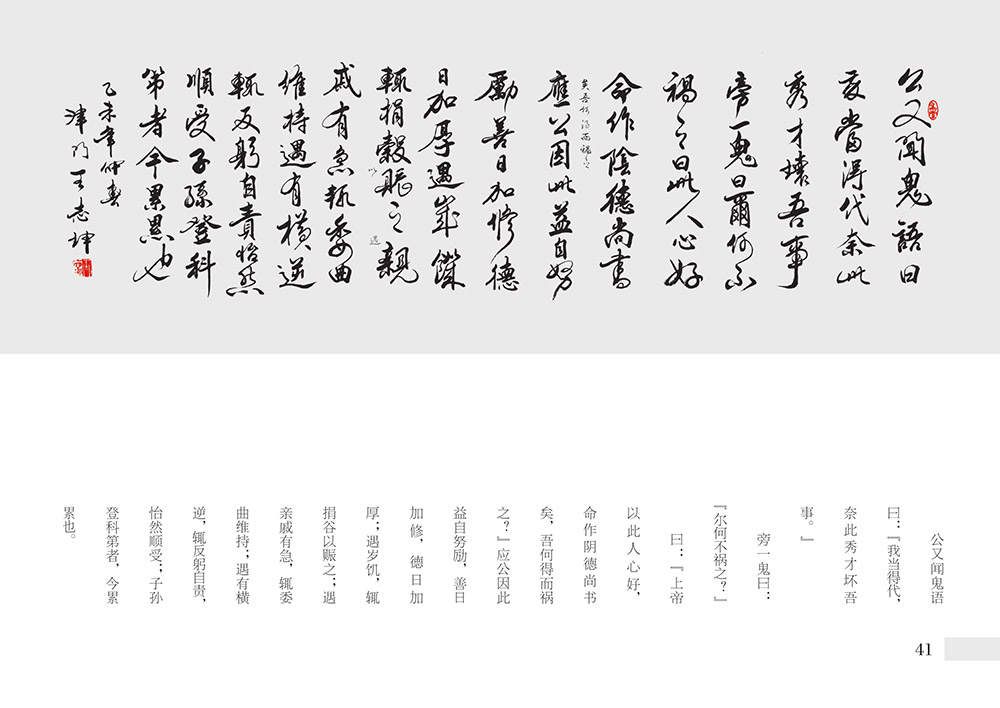 公又聞鬼語曰
我當得代奈此
秀才壞吾事
旁一鬼曰爾何不
禍之曰此人心好
命作陰德尚書
矣吾何得而禍之
應公因此益自努
勵善日加修德
日加厚遇歲饑
輒捐穀以賑之遇親
戚有急輒委曲
維持遇有橫逆
輒反躬自責怡然
順受子孫登科
第者今累累也
乙未年仲春
津門王志坤
公又闻鬼语
曰：『我当得代，
奈此秀才坏吾
事。』
旁一鬼曰：
『尔何不祸之？』
曰：『上帝
以此人心好，
命作阴德尚书
矣，吾何得而祸
之？』应公因此
益自努励，善日
加修，德日加
厚；遇岁饥，辄
捐谷以赈之；遇
亲戚有急，辄委
曲维持；遇有横
逆，辄反躬自责，
怡然顺受；子孙
登科第者，今累
累也。
41